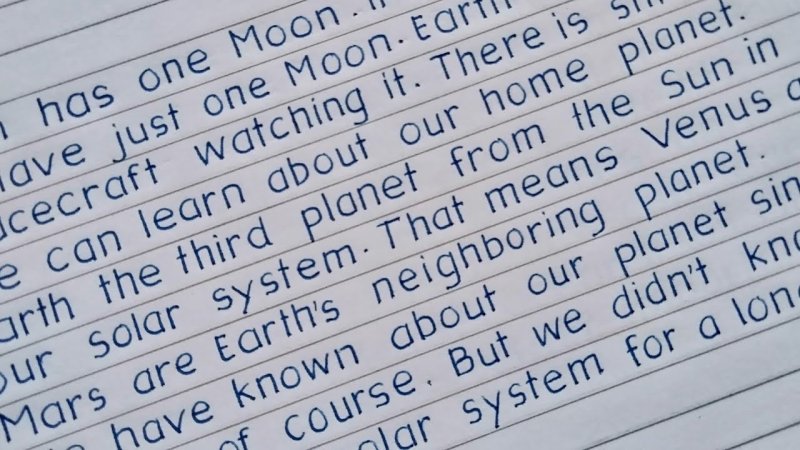 has one Moon.
have just one Moon. Earth
spacecraft watching it. There is
can learn about our home planet.
Earth the third planet from the Sun in
our solar system. That means Venus
Mars are Earth's neighboring planet.
have known about our planet
of course. But we didn't
solar system for a long